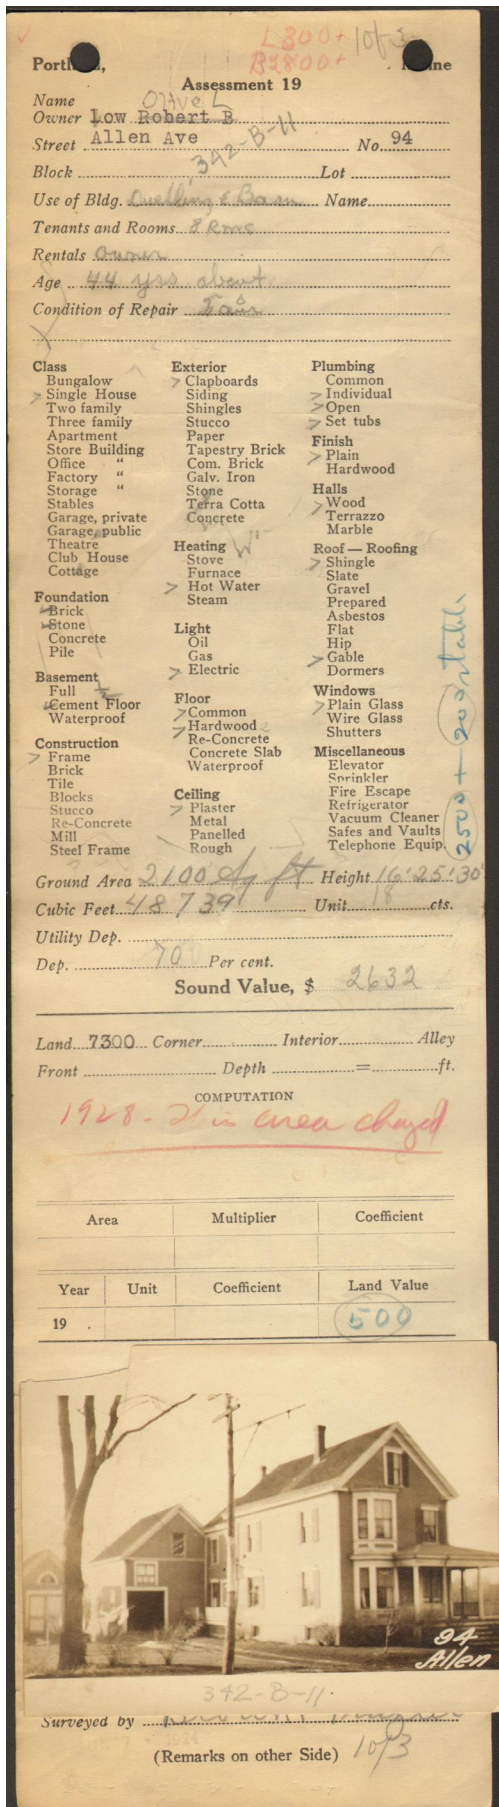 L300+ 1of3
B2800+
Portl d, ine
Assessment 19
Name Olive L
Owner Low Robert B
Street Allen Ave No. 94
342-B-11
Block Lot
Use of Bldg. Dwelling & Barn Name
Tenants and Rooms 8 Rms
Rentals Owner
Age 44 yrs about
Condition of Repair Fair
Class
Bungalow
Single House
Two family
Three family
Apartment
Store Building
Office "
Factory "
Storage "
Stables
Garage, private
Garage, public
Theatre
Club House
Cottage
Foundation
Brick
Stone
Concrete
Pile
Basement
Full ½
Cement Floor
Waterproof
Construction
Frame
Brick
Tile
Blocks
Stucco
Re-Concrete
Mill
Steel Frame
Exterior
Clapboards
Siding
Shingles
Stucco
Paper
Tapestry Brick
Com. Brick
Galv. Iron
Stone
Terra Cotta
Concrete
Heating
Stove
Furnace
Hot Water
Steam
Light
Oil
Gas
Electric
Floor
Common
Hardwood
Re-Concrete
Concrete Slab
Waterproof
Ceiling
Plaster
Metal
Panelled
Rough
Plumbing
Common
Individual
Open
Set tubs
Finish
Plain
Hardwood
Halls
Wood
Terrazzo
Marble
Roof — Roofing
Shingle
Slate
Gravel
Prepared
Asbestos
Flat
Hip
Gable
Dormers
Windows
Plain Glass
Wire Glass
Shutters
Miscellaneous
Elevator
Sprinkler
Fire Escape
Refrigerator
Vacuum Cleaner
Safes and Vaults
Telephone Equip.
2500 + 200 stable
Ground Area 2100 Sq ft Height 16'25'30'
Cubic Feet 48739 Unit 18 cts.
Utility Dep.
Dep. 70 Per cent.
Sound Value, $ 2632
Land 7300 Corner Interior Alley
Front Depth = ft.
COMPUTATION
1928 - in area chged
Area Multiplier Coefficient
Year Unit Coefficient Land Value
19 . 500
94
Allen
342-B-11
Surveyed by
(Remarks on other Side) 1of3